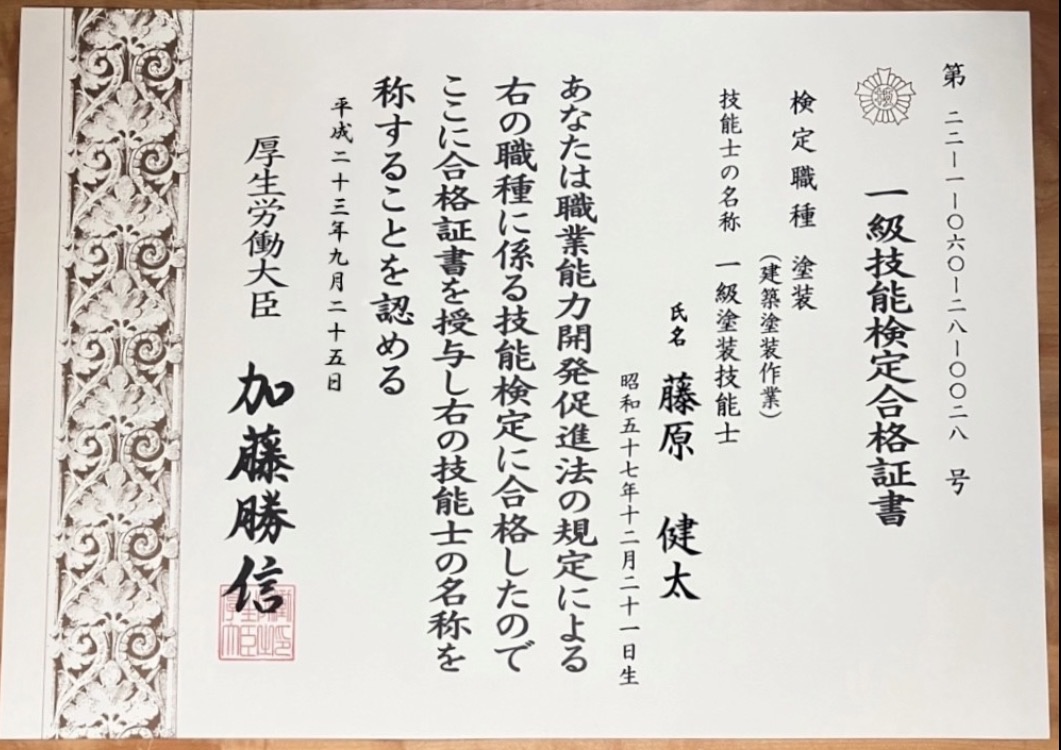 第 二二―一―〇六〇―二八―〇〇二八 号
一級技能検定合格証書
検定職種 塗装
(建築塗装作業)
技能士の名称 一級塗装技能士
氏名 藤原 健太
昭和五十七年十二月二十一日生
あなたは職業能力開発促進法の規定による
右の職種に係る技能検定に合格したので
ここに合格証書を授与し右の技能士の名称を
称することを認める
平成二十三年九月二十五日
厚生労働大臣 加藤勝信